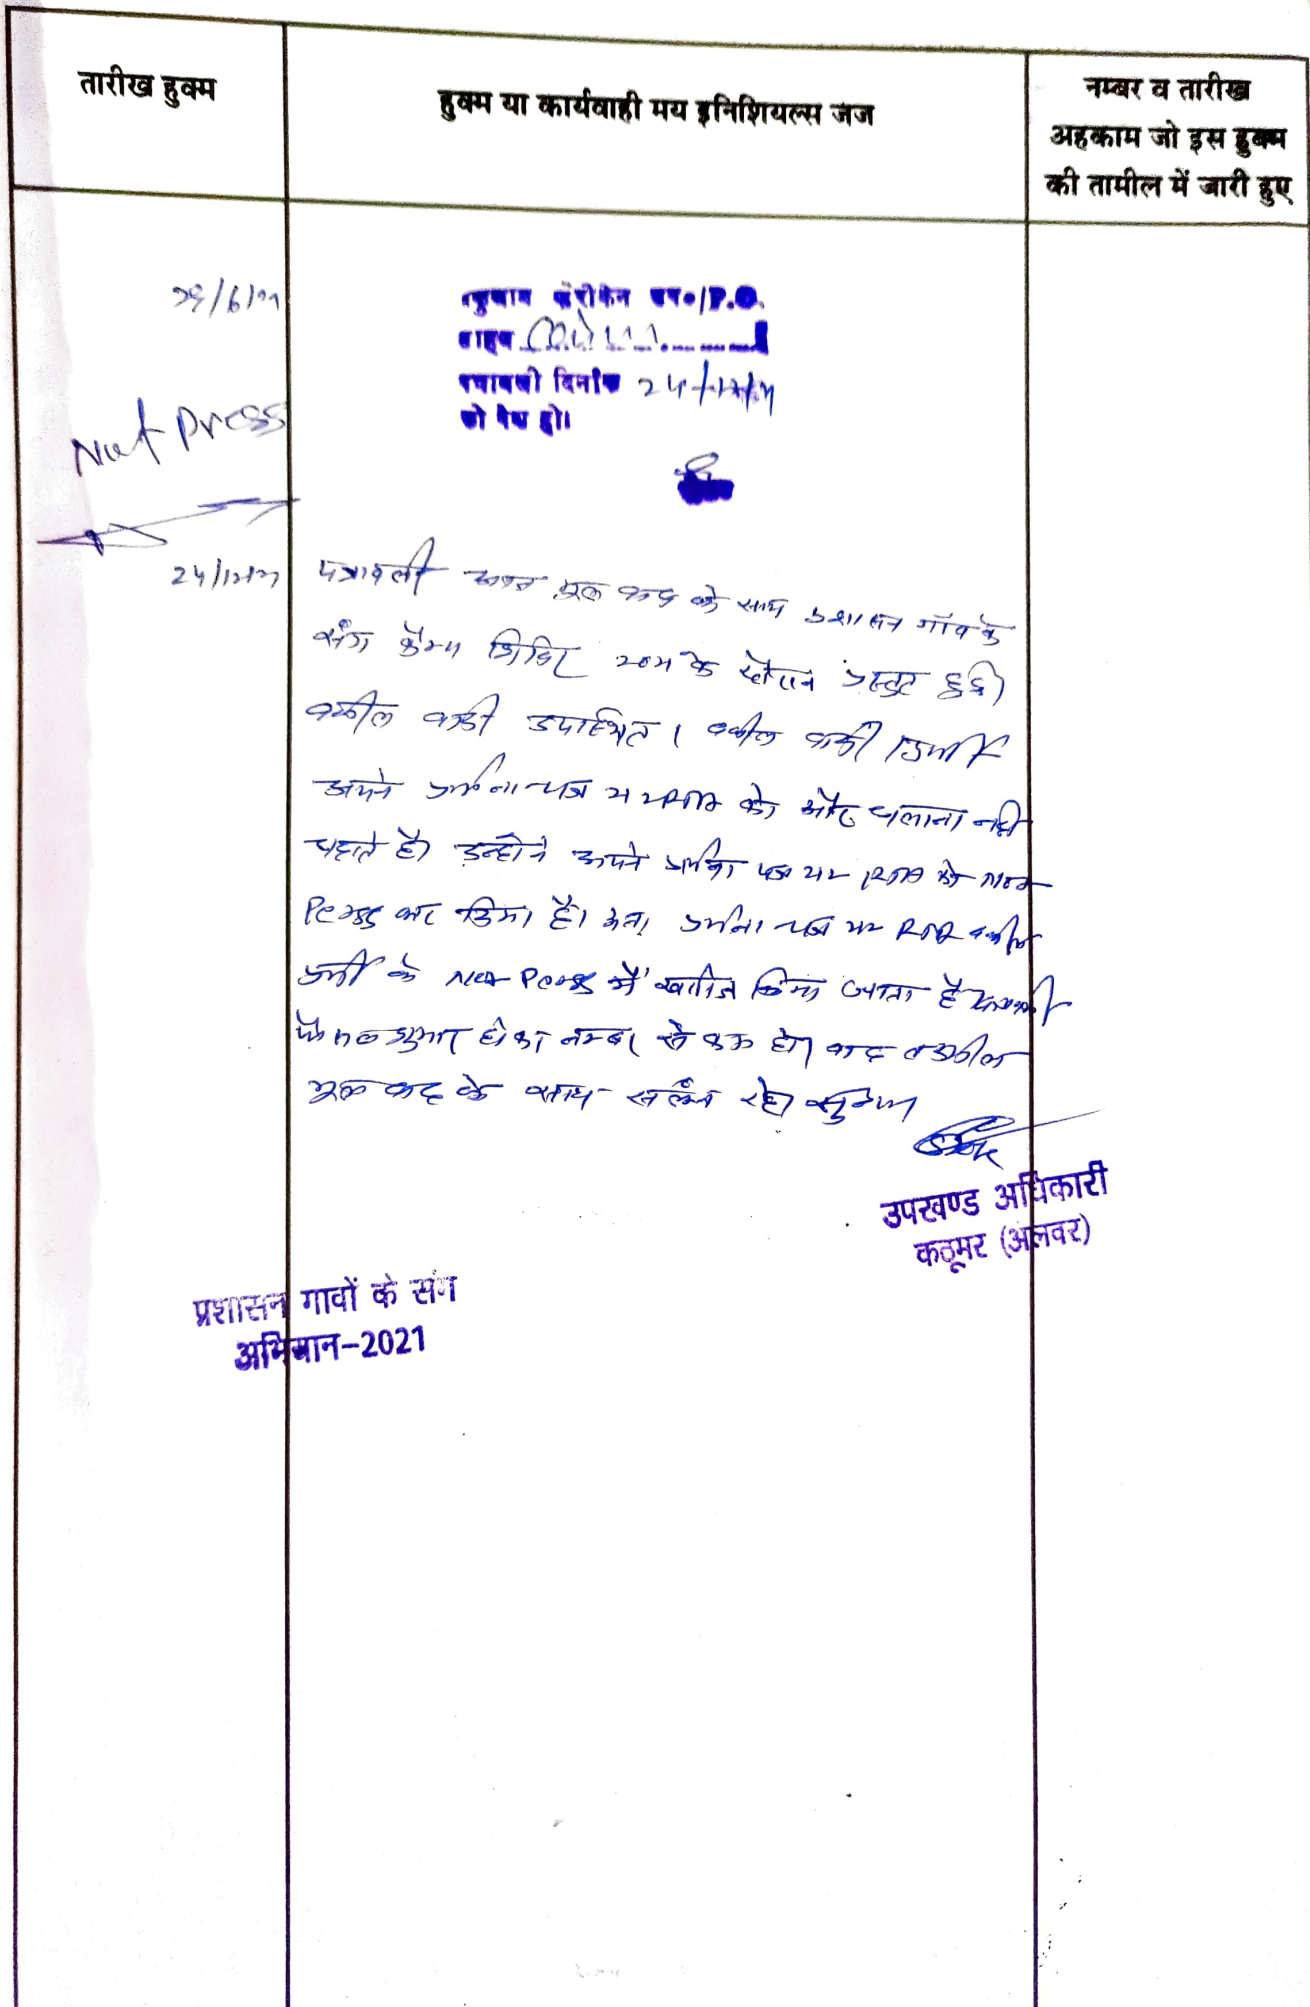 तारीख हुक्म
हुक्म या कार्यवाही मय इनिशियल्स जज
नम्बर व तारीख
अहकाम जो इस हुक्म
की तामील में जारी हुए
P.O.
साहब
पत्रावली दिनांक 24/12/21
को पेश हो।
Not Press
24/12/21
पत्रावली मूल वाद के साथ प्रशासन गाँव के
संग कैम्प शिविर 2021 के दौरान प्रस्तुत हुई।
वकील वादी उपस्थित। वकील वादी
अपने प्रार्थना पत्र को और चलाना नही
चहाते है। उन्होंने अपने प्रार्थना पत्र को
Press कर दिया है। अतः प्रार्थना पत्र
प्रार्थी के Not Press में खारिज किया जाता है
फैसल शुमार होकर नम्बर से कम हो। वाद तकमील
मूल वाद के साथ संलग्न रहे।
उपखण्ड अधिकारी
कठूमर (अलवर)
प्रशासन गावों के संग
अभियान-2021